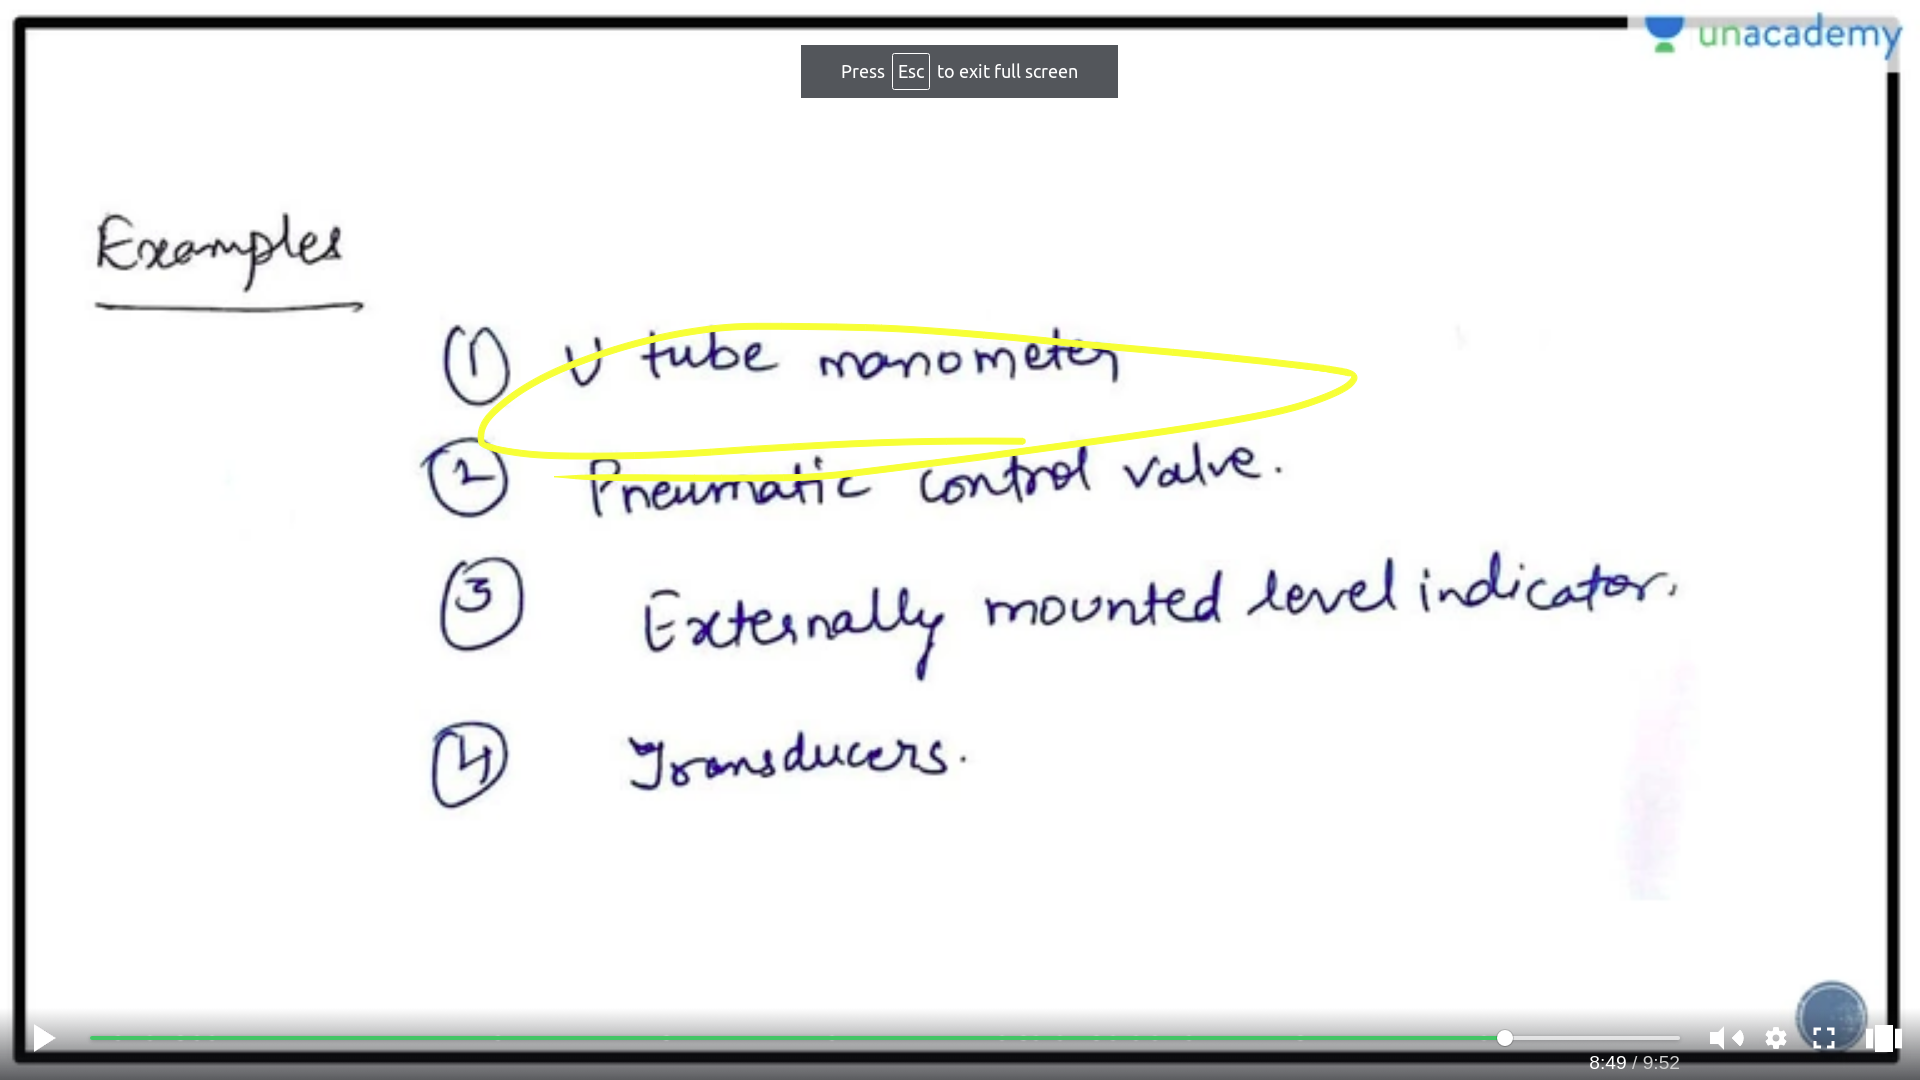 unacademy
Press Esc to exit full screen
Examples
① U tube manometer
② Pneumatic control valve.
③ Externally mounted level indicator.
④ Transducers.
8:49 / 9:52